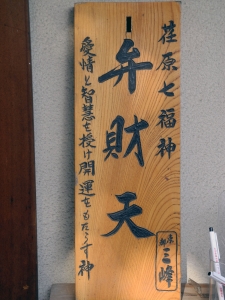 荏原七福神
弁財天
愛情と智慧を授け開運をもたらす神
三峰